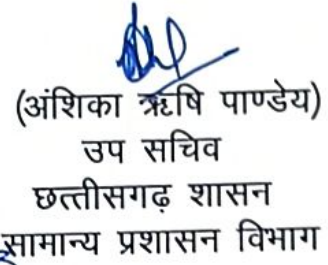 (अंशिका ऋषि पाण्डेय)
उप सचिव
छत्तीसगढ़ शासन
सामान्य प्रशासन विभाग